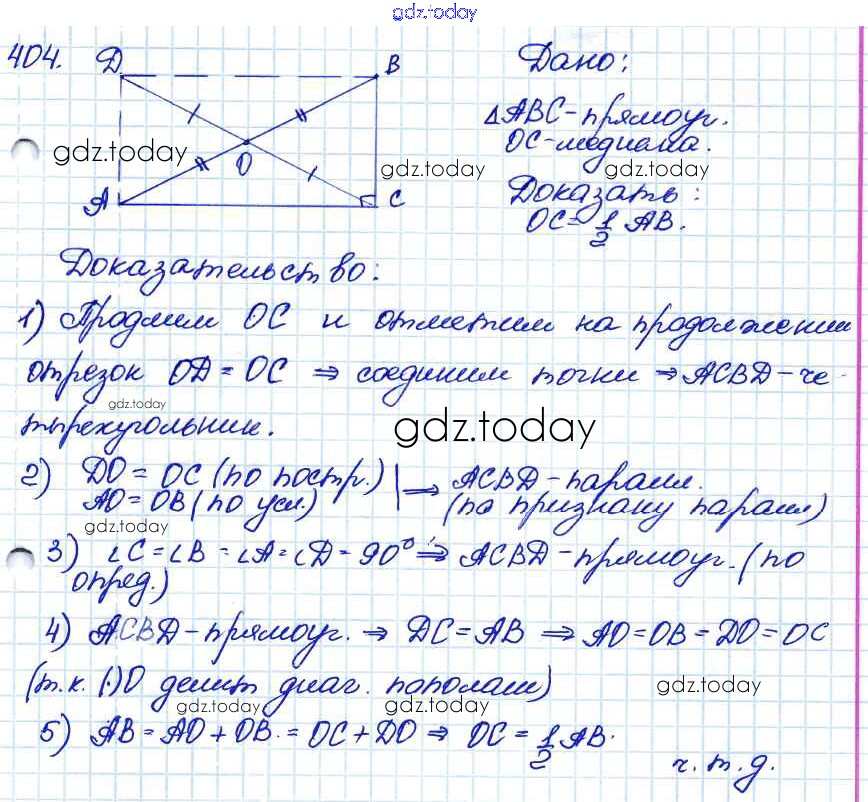 gdz.today
404. D B Дано:
△ABC - прямоуг.
OC - медиана.
gdz.today O gdz.today gdz.today
A C Доказать:
OC = 1/2 AB.
Доказательство:
1) Продлим OC и отметим на продолжении
отрезок OD = OC ⇒ соединим точки ⇒ ACBD - че-
gdz.today
тырехугольник. gdz.today
2) DO = OC (по постр.) | ⇒ ACBD - паралл.
AO = OB (по усл.) (по признаку паралл)
gdz.today
3) ∠C = ∠B = ∠A = ∠D = 90° ⇒ ACBD - прямоуг. (по
опред.)
4) ACBD - прямоуг. ⇒ DC = AB ⇒ AO = OB = DO = OC
(т.к. (·)O делит диаг. пополам) gdz.today
gdz.today gdz.today
5) AB = AO + OB = OC + DO ⇒ OC = 1/2 AB.
ч.т.д.